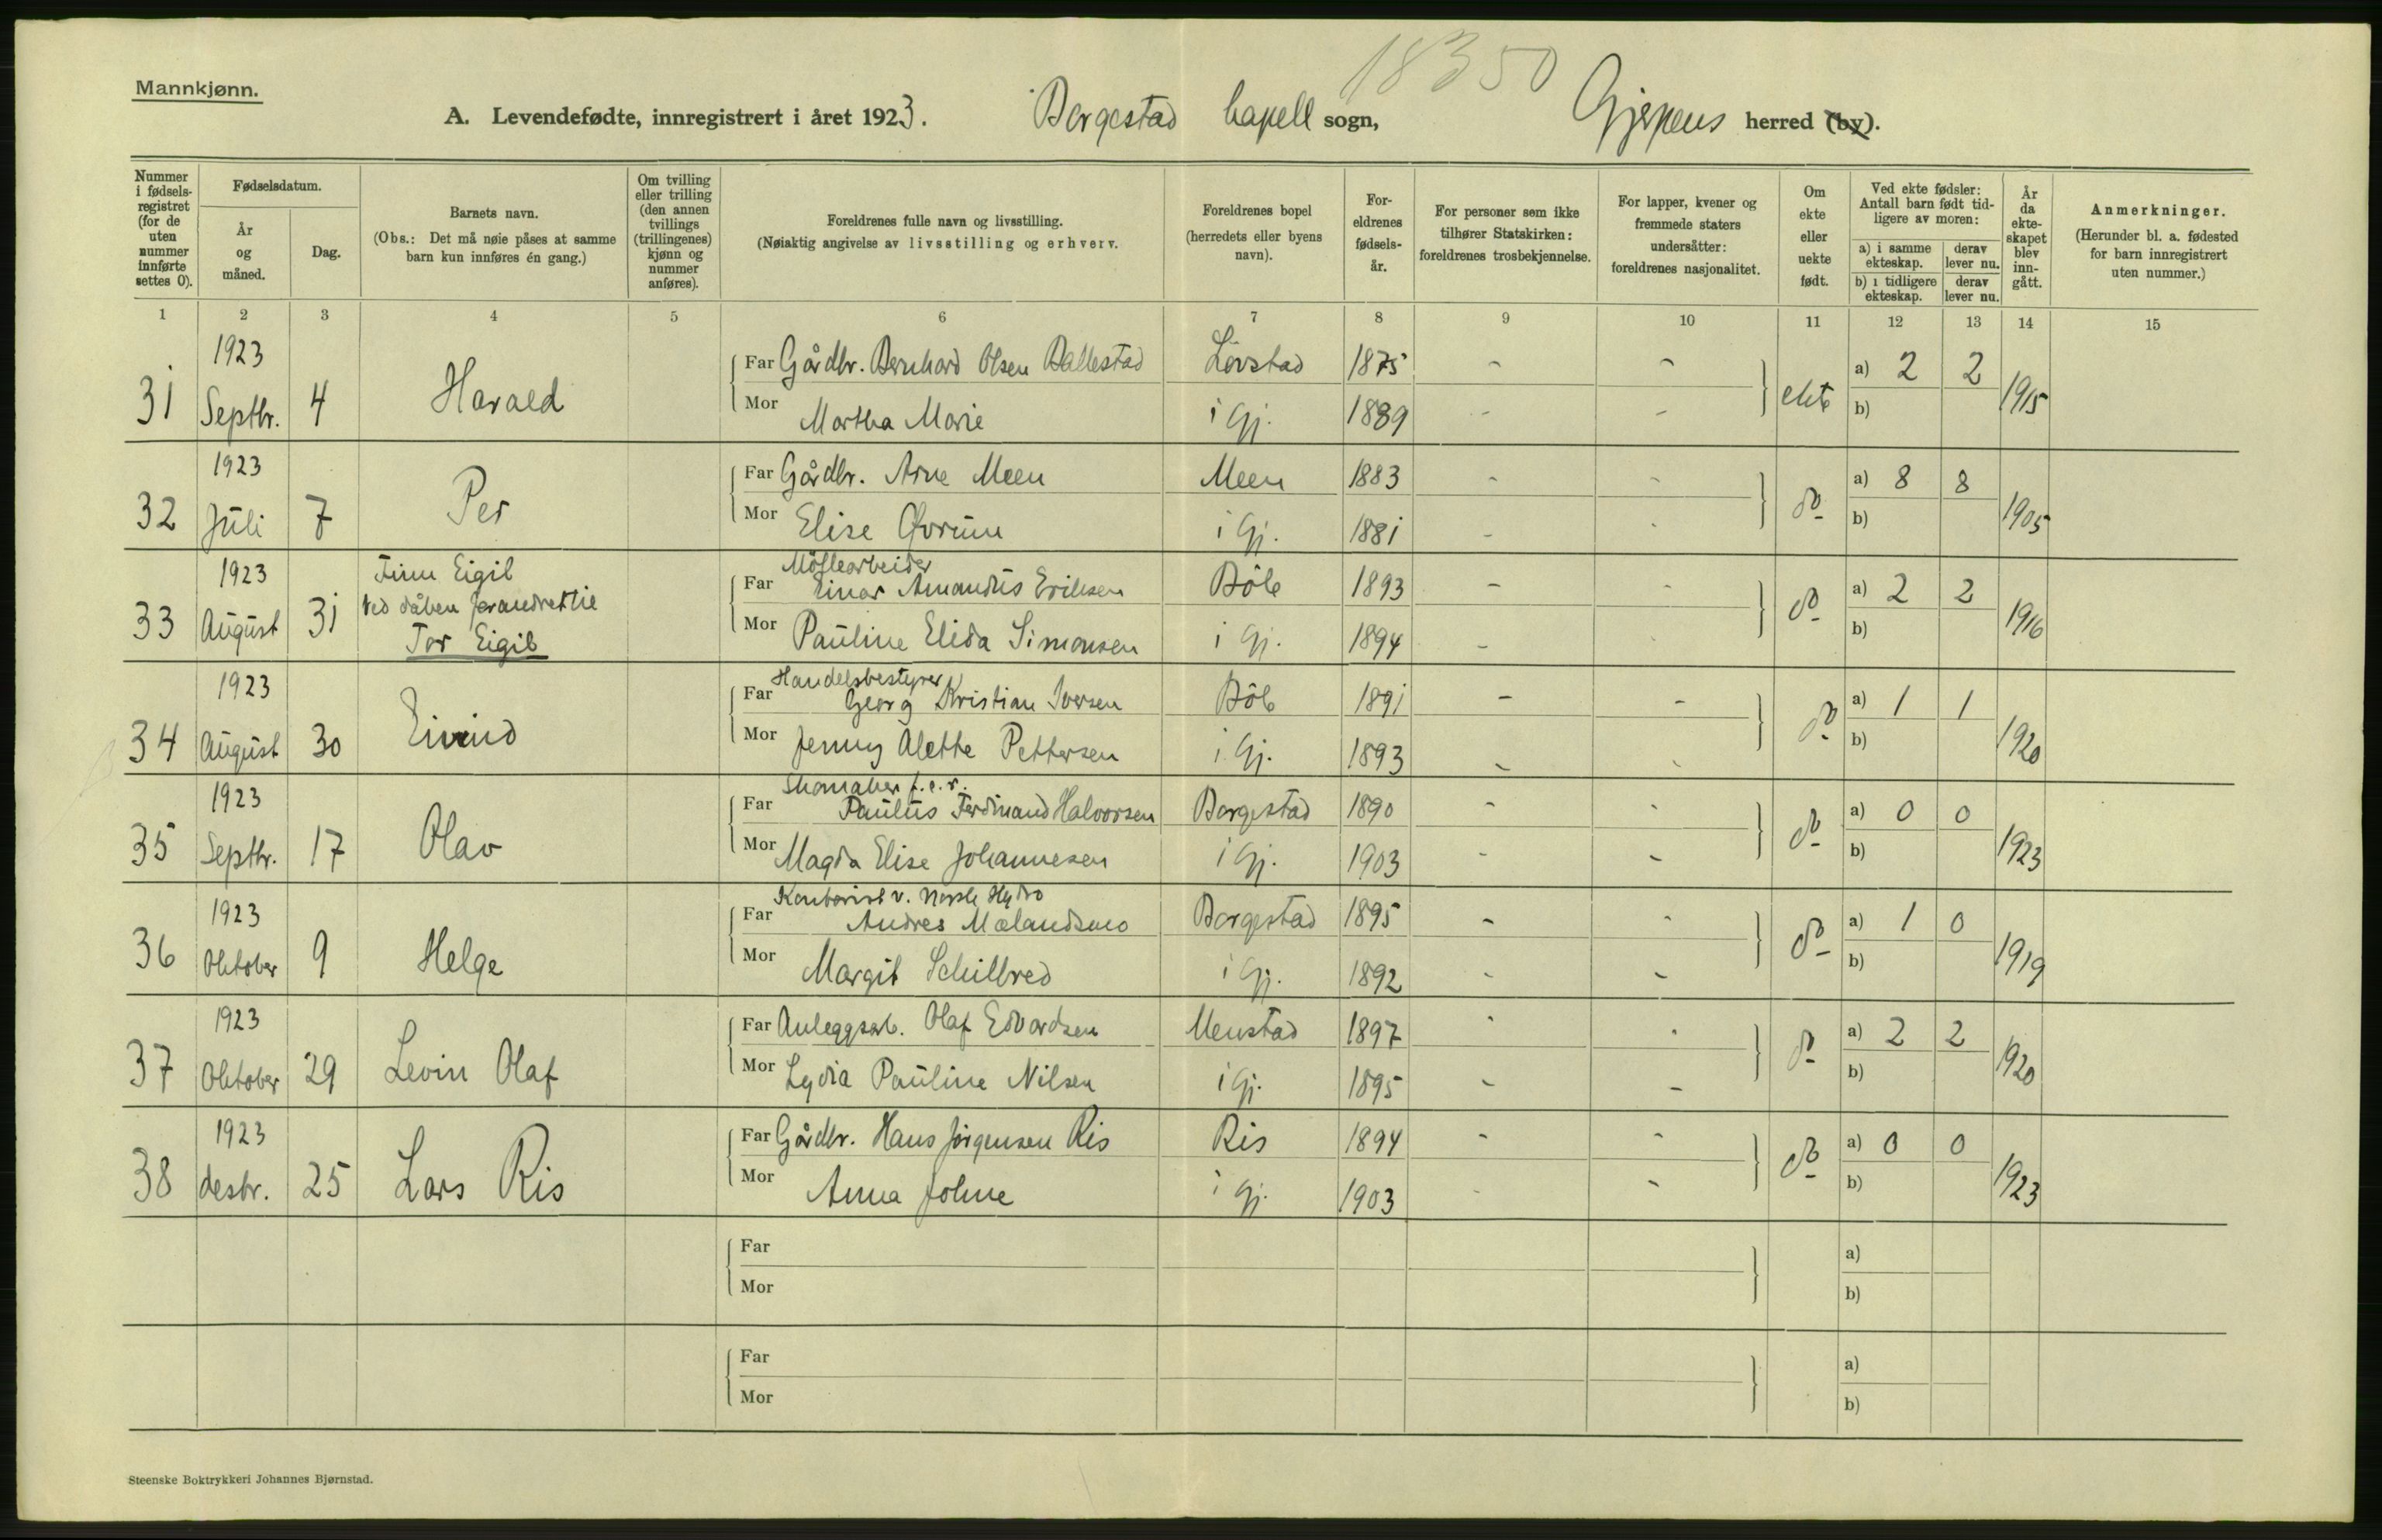 18350
Mannkjønn.
A. Levendefødte, innregistrert i året 1923. Borgestad kapell sogn, Gjerpens herred (by).
Nummer i fødselsregistret (for de uten nummer innførte settes 0).
Fødselsdatum.
År og måned.
Dag.
Barnets navn.
(Obs.: Det må nøie påses at samme barn kun innføres én gang.)
Om tvilling eller trilling (den annen tvillings (trillingenes) kjønn og nummer anføres).
Foreldrenes fulle navn og livsstilling.
(Nøiaktig angivelse av livsstilling og erhverv.
Foreldrenes bopel (herredets eller byens navn).
Foreldrenes fødselsår.
For personer som ikke tilhører Statskirken: foreldrenes trosbekjennelse.
For lapper, kvener og fremmede staters undersåtter: foreldrenes nasjonalitet.
Om ekte eller uekte født.
Ved ekte fødsler: Antall barn født tidligere av moren:
a) i samme ekteskap. derav lever nu.
b) i tidligere ekteskap. derav lever nu.
År da ekteskapet blev inngått.
Anmerkninger.
(Herunder bl. a. fødested for barn innregistrert uten nummer.)
1 2 3 4 5 6 7 8 9 10 11 12 13 14 15
31 1923 Septbr. 4 Harald
Far Gårdbr. Bernhard Olsen Ballestad Løvstad 1875 - - ekte a) 2 2 1915
Mor Martha Marie i Gj. 1889 - - b)
32 1923 Juli 7 Per
Far Gårdbr. Arne Meen Meen 1883 - - do- a) 8 8 1905
Mor Elise i Gj. 1881 - - b)
33 1923 August 31 Finn Eigil
ved dåben forandret til
Tor Eigil
Far Møllearbeider
Einar Amandus Eriksen Bøle 1893 - - do- a) 2 2 1916
Mor Pauline Elida Simonsen i Gj. 1894 - - b)
34 1923 August 30 Eivind
Far Handelsbestyrer
Georg Kristian Iversen Bøle 1891 - - do- a) 1 1 1920
Mor Jenny Alette Pettersen i Gj. 1893 - - b)
35 1923 Septbr. 17 Olav
Far Skomaker f. e. r.
Paulus Ferdinand Halvorsen Borgestad 1890 - - do- a) 0 0 1923
Mor Magda Elise Johannesen i Gj. 1903 - - b)
36 1923 Oktober 9 Helge
Far Kontorist v. Norsk Hydro
Andres Mælandsmo Borgestad 1895 - - do- a) 1 0 1919
Mor Margit Schilbred i Gj. 1892 - - b)
37 1923 Oktober 29 Levin Olaf
Far Anleggsarb. Olaf Edvardsen Menstad 1897 - - do- a) 2 2 1920
Mor Lydia Pauline Nilsen i Gj. 1895 - - b)
38 1923 desbr. 25 Lars Ris
Far Gårdbr. Hans Jørgensen Ris Ris 1894 - - do- a) 0 0 1923
Mor Anna Joline i Gj. 1903 - - b)
Far a)
Mor b)
Far a)
Mor b)
Steenske Boktrykkeri Johannes Bjørnstad.